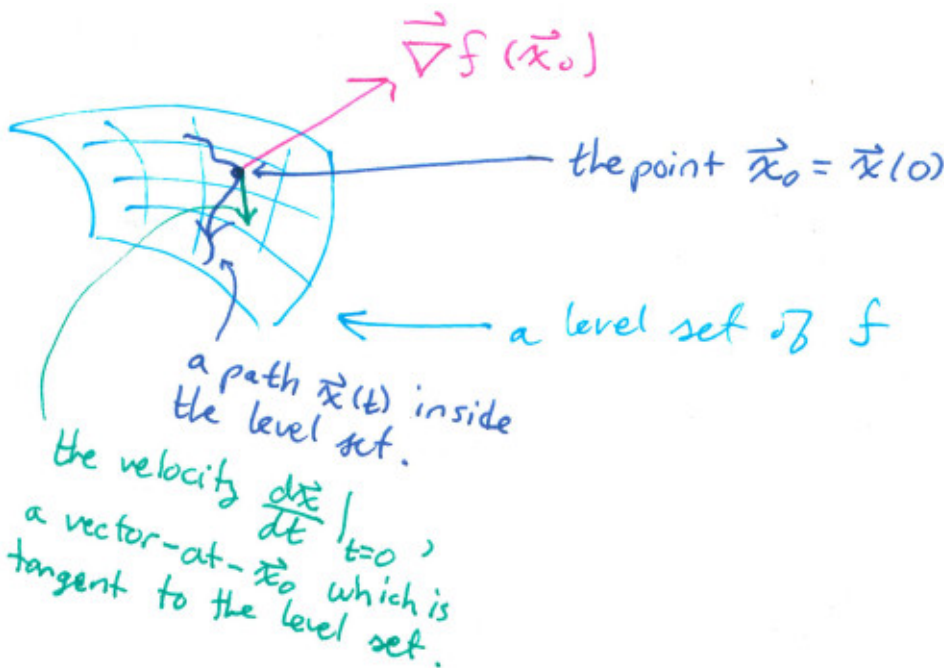 ∇⃗f(x⃗₀)
the point x⃗₀ = x⃗(0)
a level set of f
a path x⃗(t) inside
the level set.
the velocity dx⃗/dt |ₜ₌₀ ,
a vector-at-x⃗₀ which is
tangent to the level set.